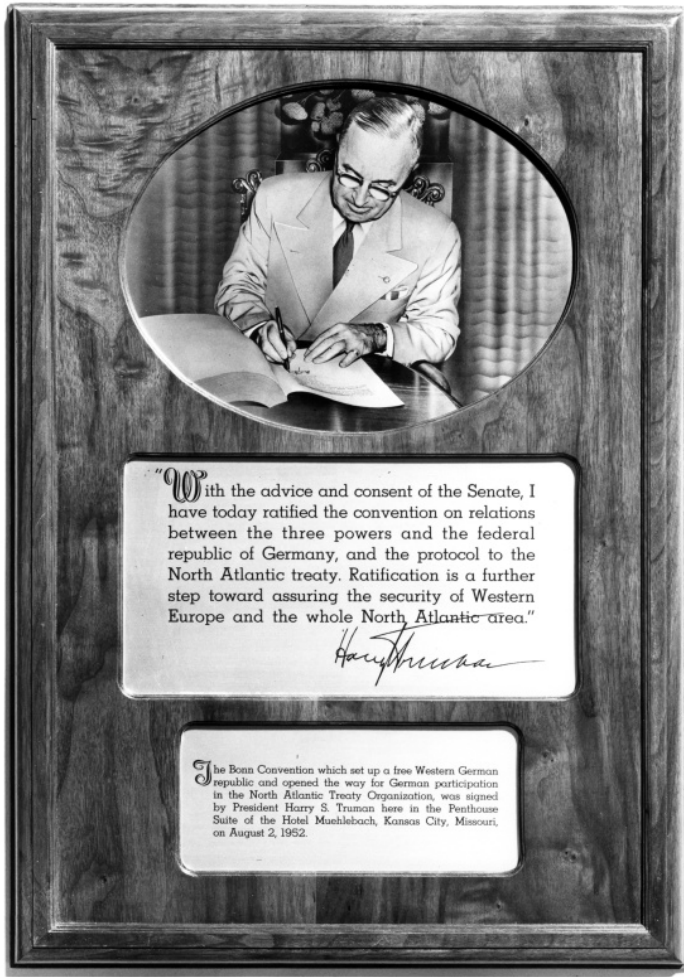 "With the advice and consent of the Senate, I
have today ratified the convention on relations
between the three powers and the federal
republic of Germany, and the protocol to the
North Atlantic treaty. Ratification is a further
step toward assuring the security of Western
Europe and the whole North Atlantic area."
Harry Truman
The Bonn Convention which set up a free Western German
republic and opened the way for German participation
in the North Atlantic Treaty Organization, was signed
by President Harry S. Truman here in the Penthouse
Suite of the Hotel Muehlebach, Kansas City, Missouri,
on August 2, 1952.